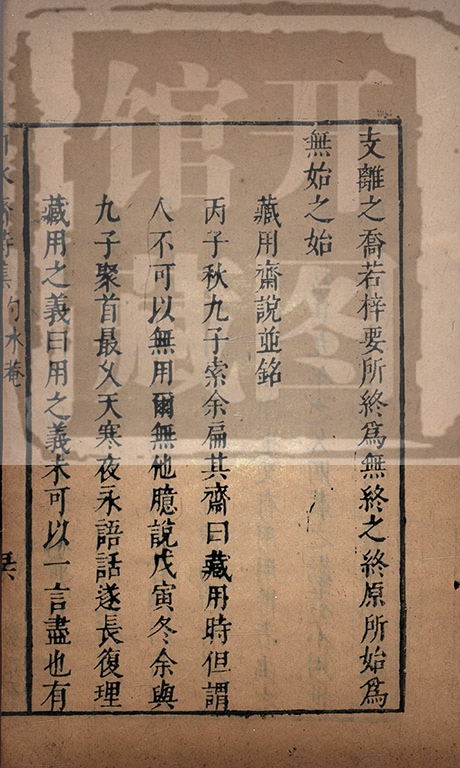 支離之喬若梓要所終爲無終之終原所始爲
無始之始
藏用齋說並銘
丙子秋九子索余扁其齋曰藏用時但謂
人不可以無用爾無他臆說戊寅冬余與
九子聚首最久天寒夜永語話遂長復理
藏用之義曰用之義未可以一言盡也有
水齋詩集 水菴
开馆
图藏